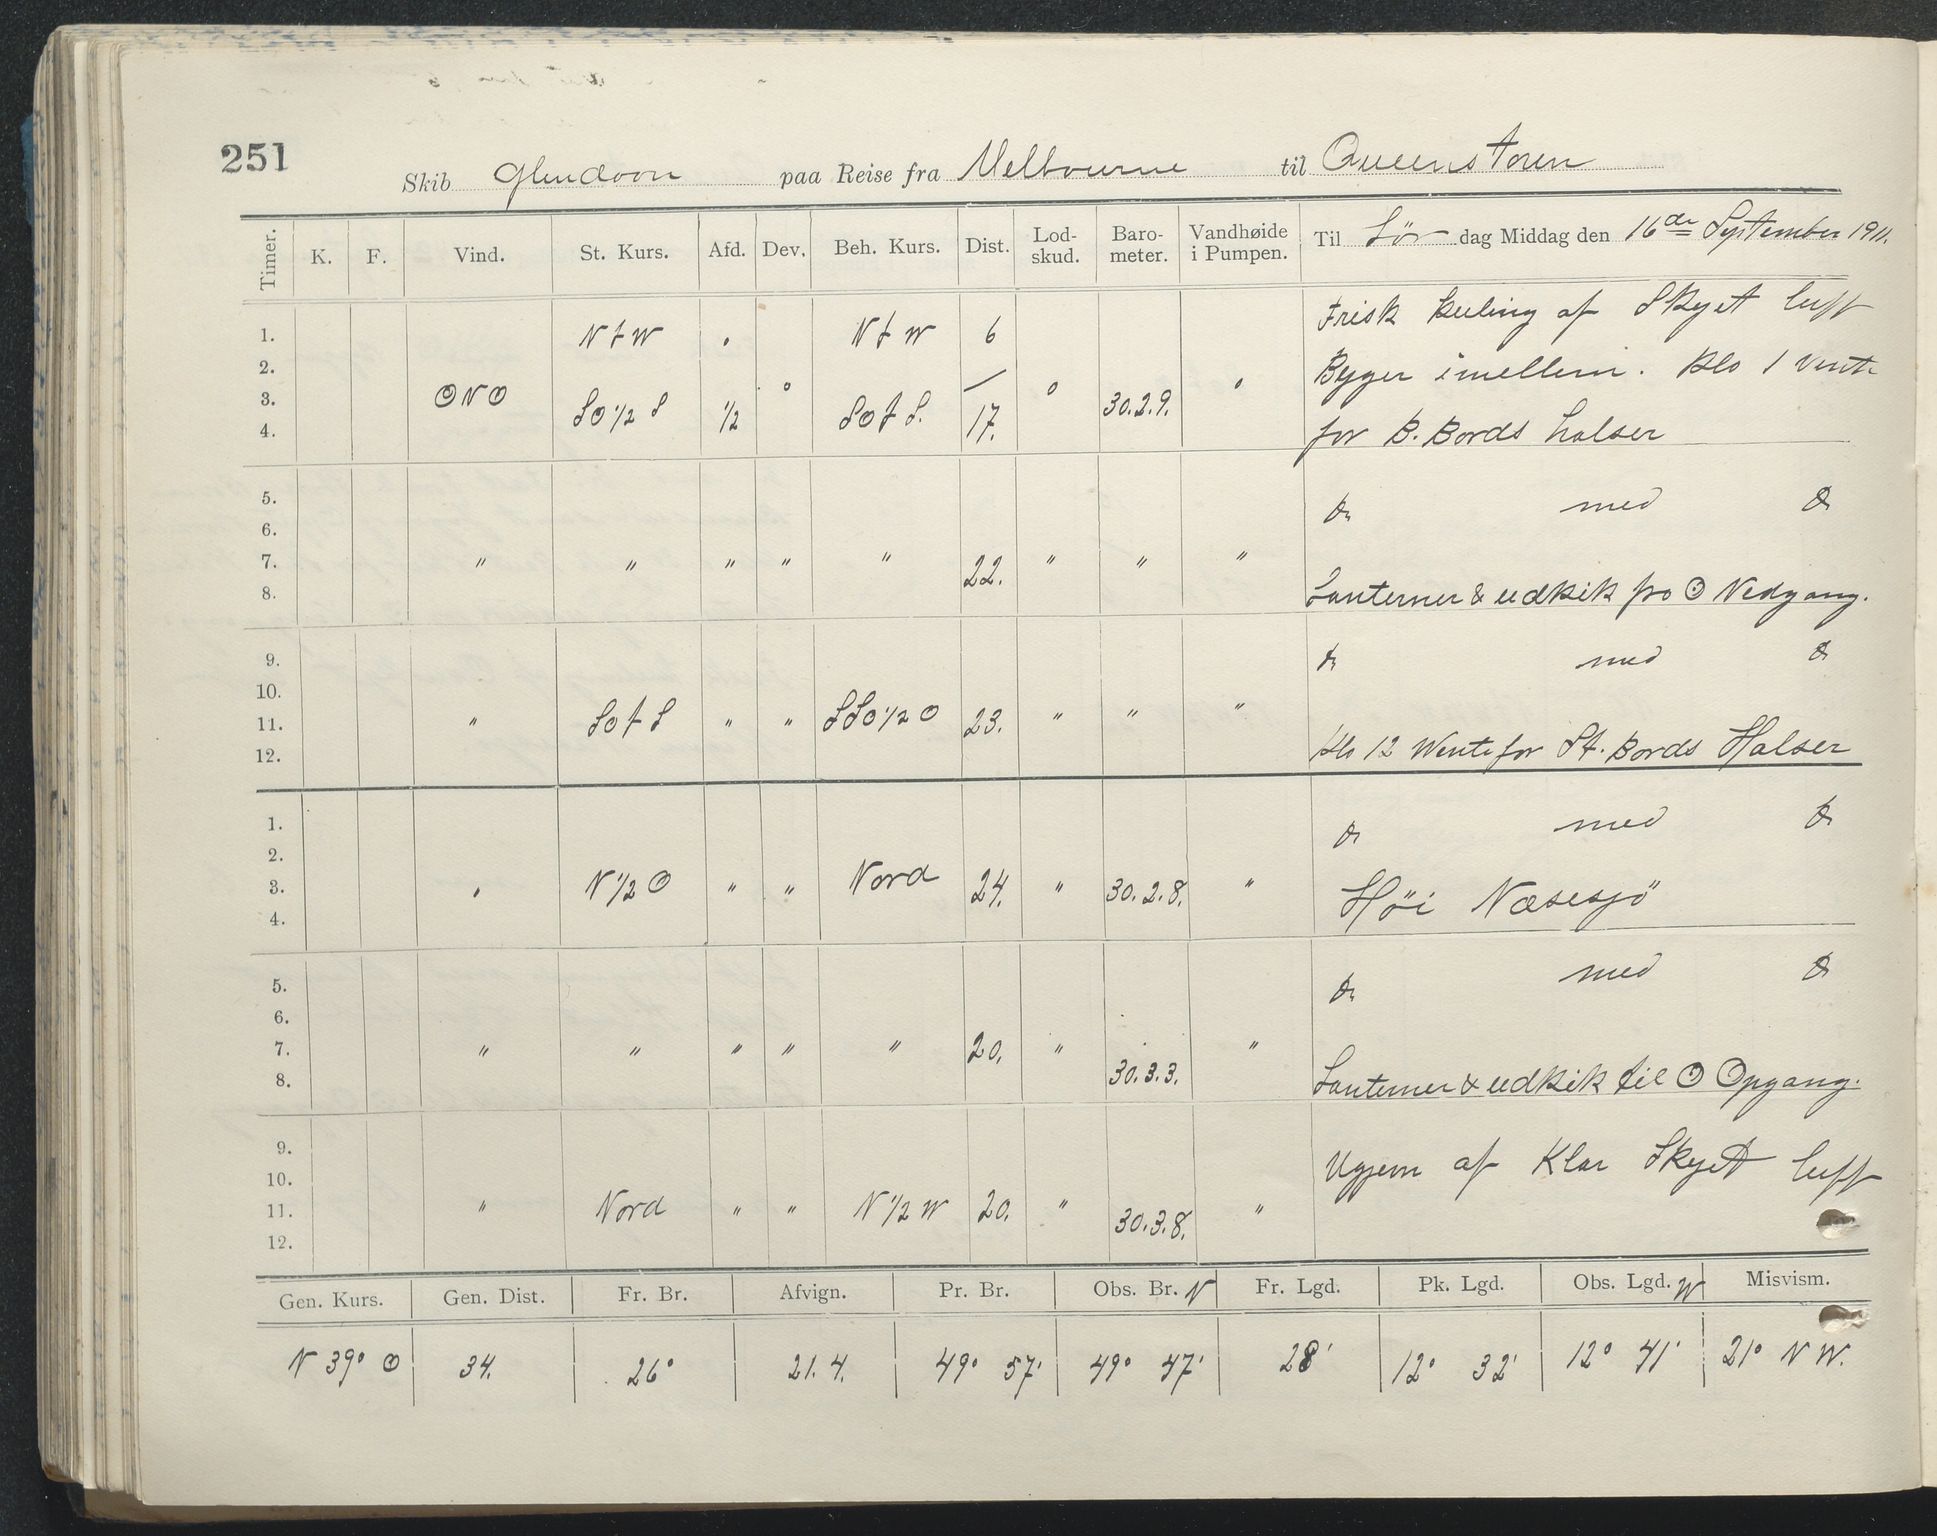 251
Skib Glendoon paa Reise fra Melbourne til Queenstown
Timer. K. F. Vind. St. Kurs. Afd. Dev. Beh. Kurs. Dist. Lod-skud. Baro-meter. Vandhøide i Pumpen. Til Lör dag Middag den 16de September 1911.
1. N t W " N t W 6 Frisk kuling af Skyet luft
2. Byger imellem. Klo 1 vente
3. ONO SO 1/2 S 1/2 ° SO t S. 17. ° 30.2.9. °
4. for B. Bords halser
5. Do med Do
6.
7. " " " " " 22. " " "
8. Lanterner & udkik fra ☉ Nedgang.
9. Do med Do
10.
11. " SO t S " " SSO 1/2 O 23. " " "
12. Klo 12 Vente for St. Bords Halser
1. Do med Do
2.
3. " N 1/2 O " " Nord 24. " 30.2.8. "
4. Høi Næsesjö
5. Do med Do
6.
7. " " " " " 20. " 30.3.3. "
8. Lanterner & udkik til ☉ Opgang.
9. Ugjevn af Klar Skyet luft
10.
11. " Nord " " N 1/2 W 20. " 30.3.8. "
12.
Gen. Kurs. Gen. Dist. Fr. Br. Afvign. Pr. Br. Obs. Br. N Fr. Lgd. Pk. Lgd. Obs. Lgd. W Misvism.
N 39° O 34. 26° 21.4. 49° 57' 49° 47' 28' 12° 32' 12° 41' 21° N W.